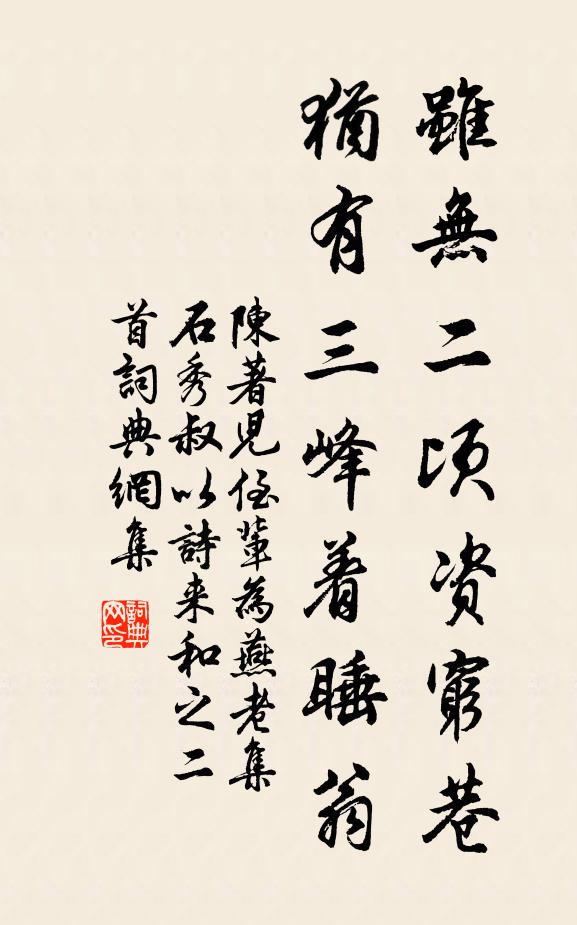 雖無二頃資窮巷
猶有三峰着睡翁
陳著兒侄輩為燕老集
石秀叔以詩来和之二
首詞典網集
詞典
网印